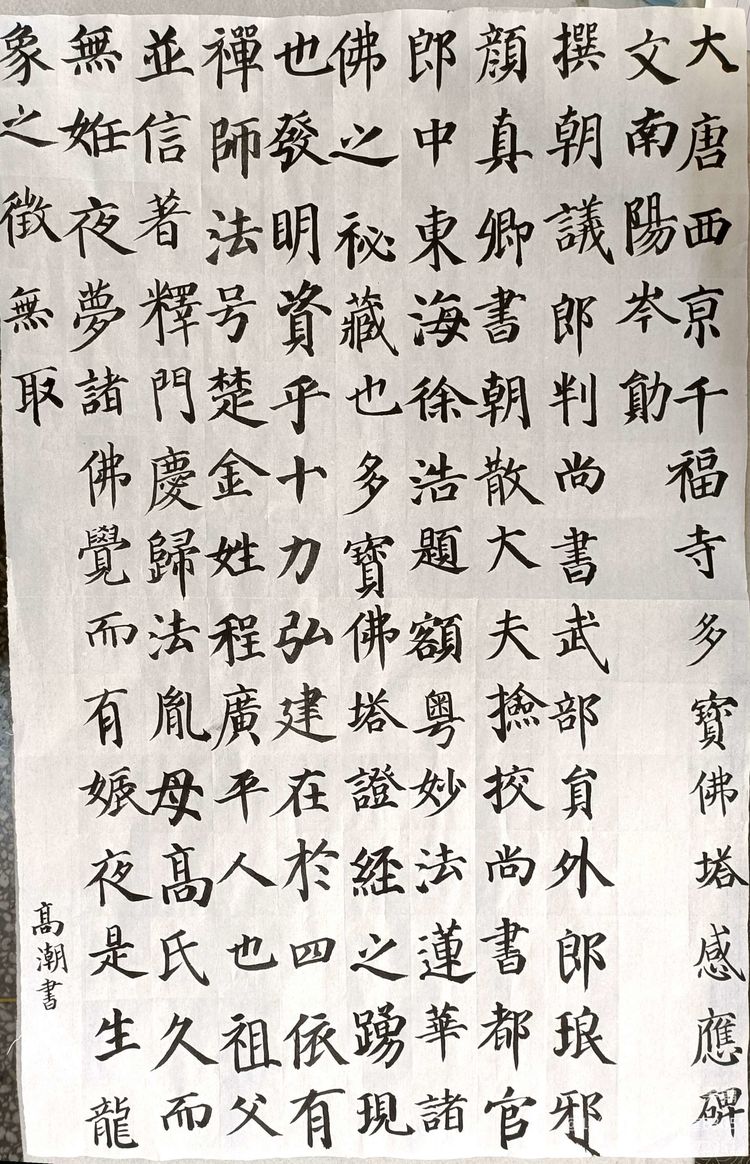 大唐西京千福寺多寳佛塔感應碑
文南陽岑勛
撰朝議郎判尚書武部貟外郎琅邪
顔真卿書朝散大夫撿挍尚書都官
郎中東海徐浩題額粤妙法蓮華諸
佛之祕藏也多寳佛塔證経之踴現
也發明資乎十力弘建在於四依有
禪師法号楚金姓程廣平人也祖父
並信著釋門慶歸法胤母髙氏久而
無姙夜夢諸佛覺而有娠夜是生龍
象之徵無取
髙潮書